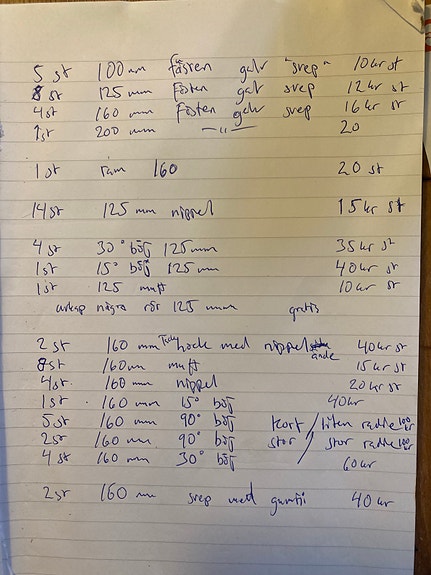 5 st 100 mm fästen galv "svep" 10 kr st
8 st 125 mm fästen galv svep 12 kr st
4 st 160 mm fästen galv svep 16 kr st
1 st 200 mm —"— 20
1 st ram 160 20 st
14 st 125 mm nippel 15 kr st
4 st 30° böj 125 mm 35 kr st
1 st 15° böj 125 mm 40 kr st
1 st 125 muff 10 kr st
några rör 125 mm gratis
2 st 160 mm med nippel ände 40 kr st
8 st 160 mm muff 15 kr st
4 st. 160 mm nippel 20 kr st
1 st. 160 mm 15° böj 40 kr
5 st 160 mm 90° böj kort / liten radie 100 kr
2 st 160 mm 90° böj stor / stor radie 100 kr
4 st 160 mm 30° böj 60 kr
2 st 160 mm svep med gummi 40 kr